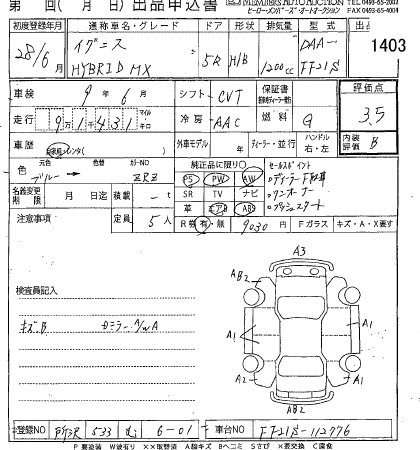 第　回(　月　日) 出品申込書
MEMBERS AUTO AUCTION TEL 0493-65-2002
ヒーローメンバーズ・オートオークション FAX 0493-65-4004
初度登録年月 通称車名・グレード ドア 形状 排気量 型式 出品
28/6 イグニス HYBRID MX 5R H/B 1200cc DAA-FF21S 1403
車検 9年6月 シフト CVT 保証書 評価点
走行 9万1千431 マイル キロ 冷房 AAC 燃料 G 3.5
車歴 外車モデル 年 ディーラー・並行 ハンドル 右・左 内装評価 B
色 元色 色替 カラーNO 純正品に限り○ セールスポイント
ブルー → ZRZ PS PW AW ・ディーラー下取車
名義変更期限 月 日迄 積載 -t SR TV ナビ ・ワンオーナー
注意事項 定員 5人 革 エアB ABS ・プッシュスタート
R券 有・無 9030円 Fガラス キズ・A・X要す
A3
AB2
検査員記入
キズ、B
A1 A1
A2 A1
AB2
登録NO 所沢 533 む 6-01 車台NO FF21S-112776
P要塗装 W波有り XX取替済 A線キズ Bヘコミ Sさび X要交換 C腐食